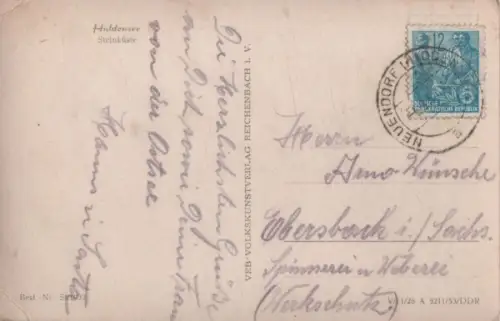 Hiddensee
Steilküste
Die herzlichsten Grüße
an Dich sowie Deine Frau
von der Ostsee
Hanns u.
VEB-VOLKSKUNSTVERLAG REICHENBACH I. V.
Best. Nr.
NEUENDORF
DEUTSCHE
DEMOKRATISCHE REPUBLIK
Herrn
Arno Wünsche
Ebersbach i./Sachs.
Spinnerei u. Weberei
(Werkschutz)
DDR